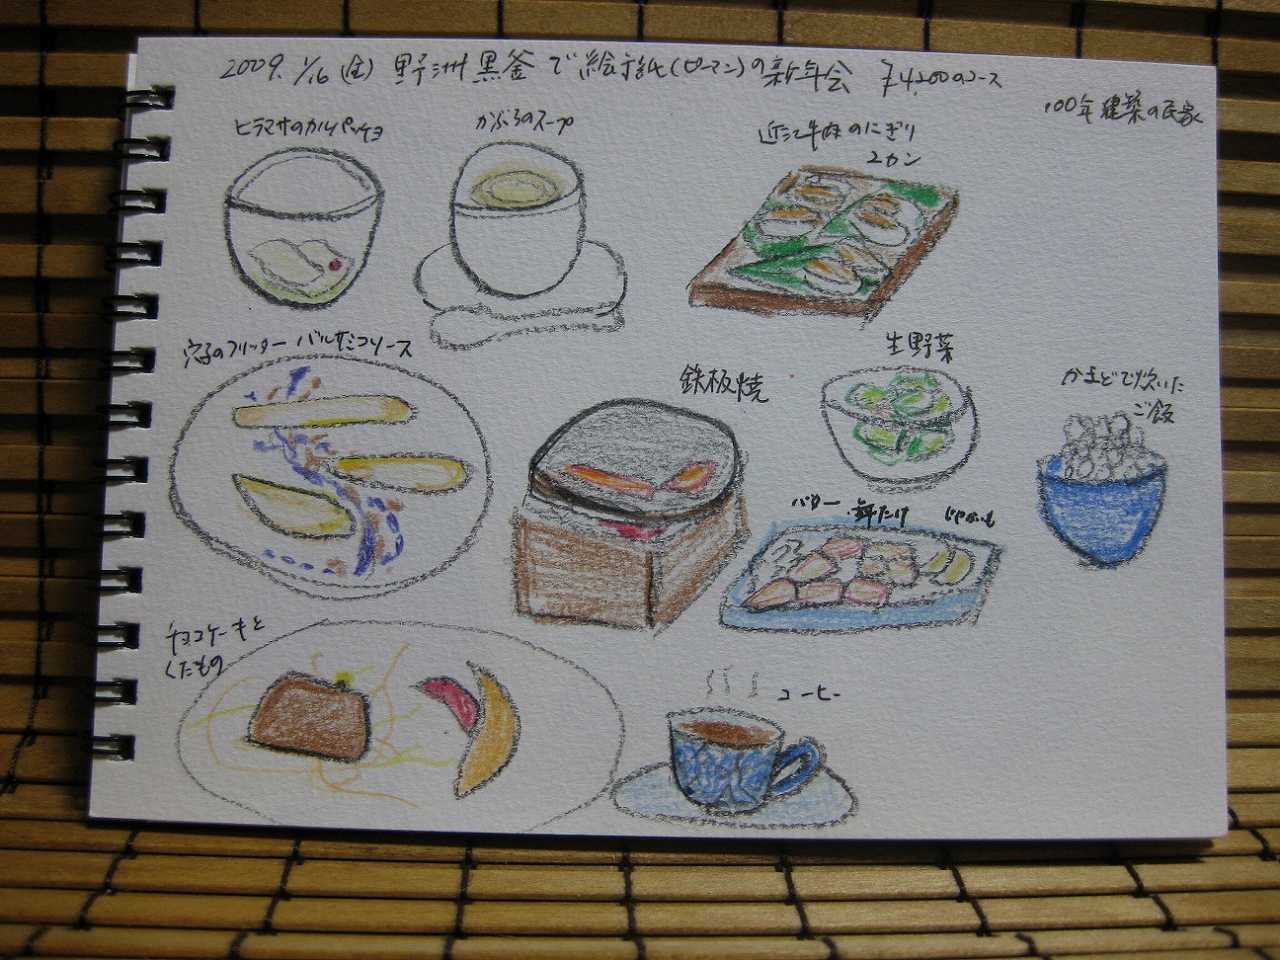 2009. 1/16 (金) 野洲黒釜で絵手紙(ピーマン)の新年会 ¥4,200のコース
100年建築の民家
ヒラマサのカルパッチョ
かぶらのスープ
近江牛肉のにぎり
2カン
穴子のフリッター バルサミコソース
鉄板焼
生野菜
かまどで炊いた
ご飯
バター 舞たけ じゃがいも
チョコケーキと
くだもの
コーヒー